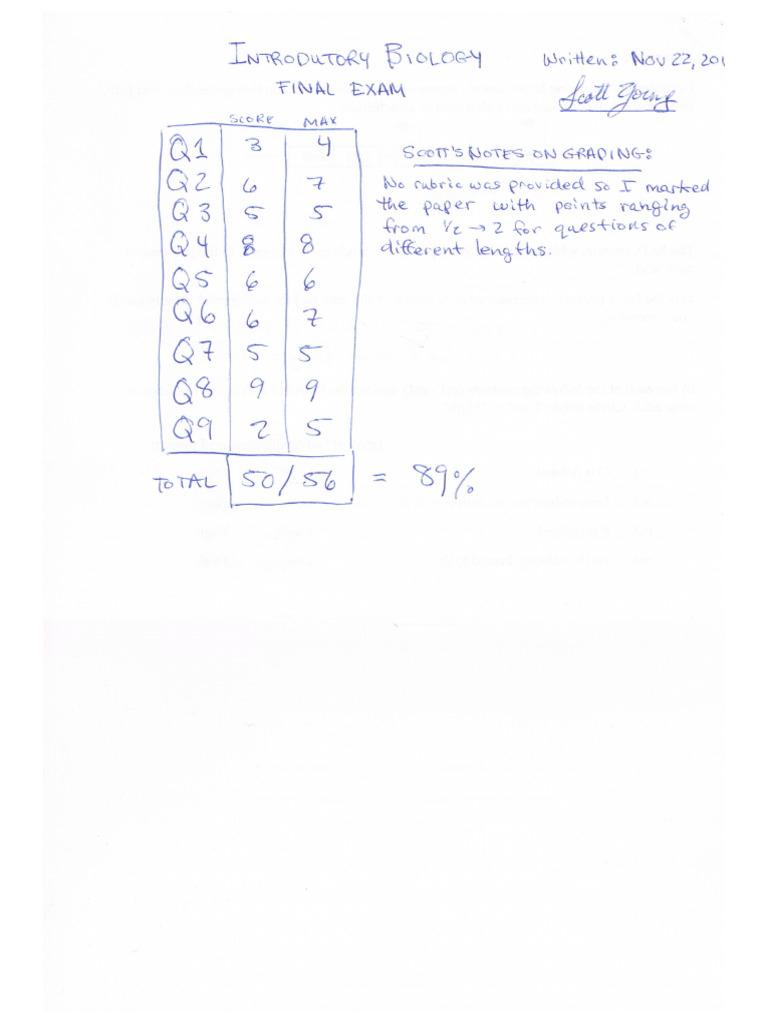 INTRODUTORY BIOLOGY Written: Nov 22, 201
FINAL EXAM Scott Young
SCORE MAX
Q1 3 4
SCOTT'S NOTES ON GRADING:
Q2 6 7
No rubric was provided so I marked
Q3 5 5
the paper with points ranging
from 1/2 → 2 for questions of
Q4 8 8
different lengths.
Q5 6 6
Q6 6 7
Q7 5 5
Q8 9 9
Q9 2 5
TOTAL 50/56 = 89%